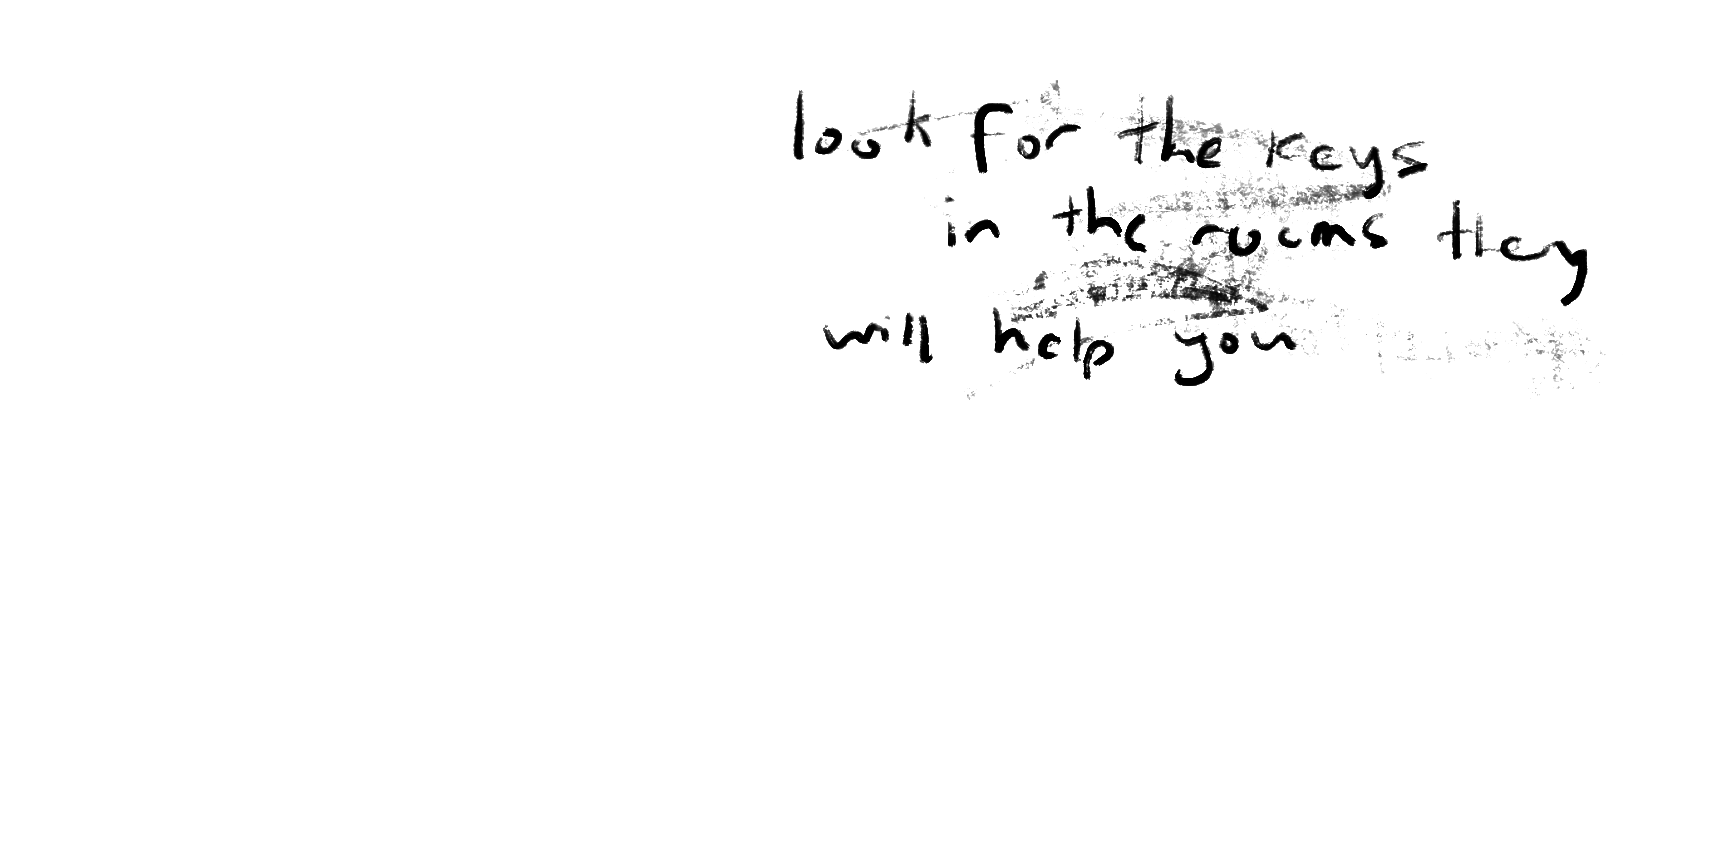 look for the keys
in the rooms they
will help you